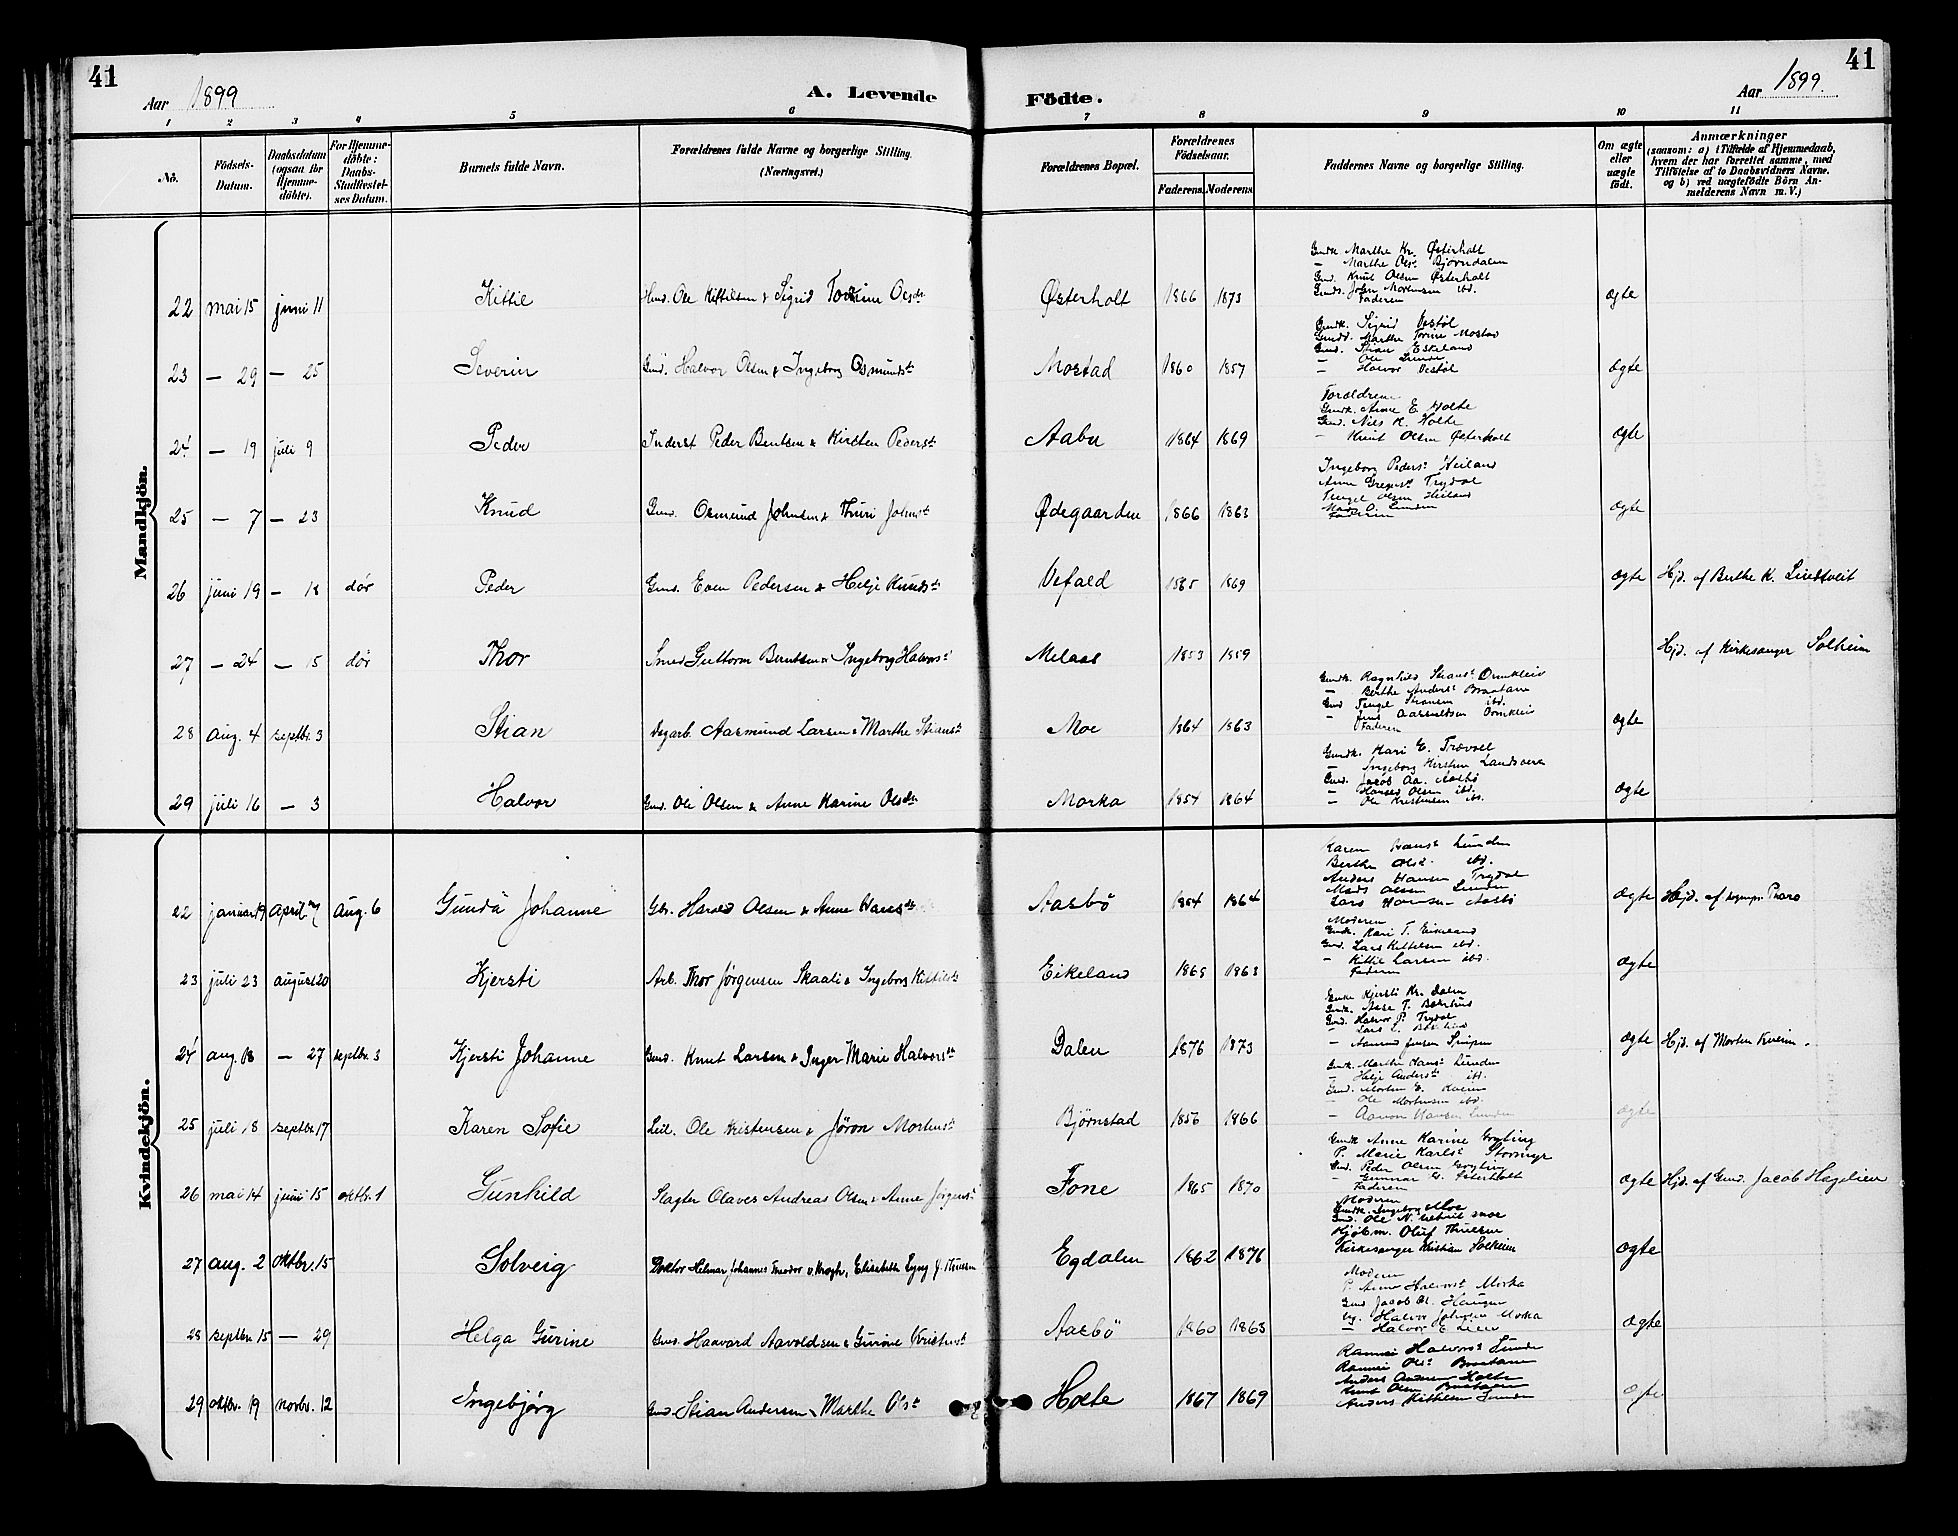 41
Aar 1899
A. Levende
Födte.
Aar 1899.
41
1 2 3 4 5 6 7 8 9 10 11
No.
Födsels-Datum.
Daabsdatum (ogsaa for Hjemme-döbte).
For Hjemme-döbte: Daabs-Stadfæstel-ses Datum.
Barnets fulde Navn.
Forældrenes fulde Navne og borgerlige Stilling. (Næringsvei.)
Forældrenes Bopæl.
Forældrenes Födselsaar.
Faderens. Moderens.
Faddernes Navne og borgerlige Stilling.
Om ægte eller uægte födt.
Anmærkninger
(saasom: a) i Tilfælde af Hjemmedaab,
hvem der har forrettet samme, med
Tilføielse af to Daabsvidners Navne.
og b) ved uægtefödte Börn An-
melderens Navn m. V.)
Mandkjön.
Gmdk. Marthe Kr. Østerholt
— Marthe Ols. Bjorndalen
Gmd. Knut Olsen Østerholt
Gmds. John Mortensen ibd.
Faderen
22 mai 15 juni 11 Kittil Gmd. Ole Kittelsen & Sigrid Torine Olsdr Østerholt 1866 1873 ægte
Gmdk. Sigrid Vestøl
Gmdd. Marthe Torine Mostad
Gmd. Stian Eskeland
— Ole Lunde
— Halvor Vestøl
23 — 29 — 25 Severin Gmd. Halvor Olsen & Ingeborg Osmundst Mostad 1860 1857 ægte
Forældrene
Gmdk. Anne E. Holte
Gmd. Nils K. Holte
— Knut Olsen Østerholt
24 — 19 juli 9 Peder Inderst Peder Bentsen & Kirsten Pederst Aabu 1864 1869 ægte
Ingeborg Peders. Heiland
Anne Gregerst Trydal
Tengel Olsen Heiland
Mads O. Lunden
Faderen
25 — 7 — 23 Knud Gmd. Osmund Johnsen & Thuri Johnst Ødegaarden 1866 1863 ægte
26 juni 19 — 18 dör Peder Gmd. Even Pedersen & Helje Knudst Vefald 1865 1869 ægte Hjd. af Berthe K. Lindtveit
27 — 24 — 15 dör Thor Smed Guttorm Berntsen & Ingeborg Halvorst Melaas 1853 1859 Hjd. af Kirkesanger Solheim
Gmdk. Ragnhild Stianst Ørnkleiv
— Berthe Anderst Braatane
Gmd Tengel Stiansen ibd.
— Jens Aasmundsen Ørnkleiv
Faderen
28 aug. 4 septbr. 3 Stian Dagarb. Aasmund Larsen & Marthe Stianst Moe 1864 1863 ægte
Gmdk. Kari E. Trævoll
— Ingeborg Kirstine Landsverk
Gmd. Jacob Aa. Aasbø
— Hans Olsen ibd.
— Ole Kristensen ibd.
29 juli 16 — 3 Halvor Gmd. Ole Olsen & Anne Karine Olsdtr Morka 1854 1864 ægte
Kvindekjön.
Karen Hanst Lunden
Berthe Olsd. ibd.
Anders Hansen Trydal
Mads Olsen Lunden
Lars Hansen Aasbø
22 januar 19 april Aug. 6 Gunda Johanne Gbr. Harald Olsen & Anne Hansdtr Aasbø 1854 1864 ægte Hjd. af sognpr. Tharo
Moderen
Gmdk. Kari T. Eikeland
Gmd. Lars Kittelsen ibd.
— Kittil Larsen ibd.
Faderen
23 juli 23 august 20 Kjersti Arb. Thor Jørgensen Skaali & Ingeborg Kittilsdt Eikeland 1865 1863 ægte
Enke Kjersti Kr. Dalen
Gmdk. Aase T. Bakkhus
Gmd. Halvor P. Trydal
— Aamund Jensen
24 aug. 18 — 27 septbr. 3 Kjersti Johanne Gmd. Knut Larsen & Inger Marie Halvorsdt Dalen 1876 1873 ægte Hjd. af Morten Kveim.
Gmdk. Marthe Hanst Lunden
— Helje Anderst ibd.
Gmd. Morten E. Kveim
— Ole Mortensen ibd.
— Aanon Hansen Lunden
25 juli 18 septbr 17 Karen Sofie Leil. Ole Kristensen & Jøron Mortenst Bjørnstad 1856 1866 ægte
Gmdk Anne Karine Grytling
P. Marie Karlst Stormyr
Gmd. Peder Olsen Grytling
— Gunnar G. Østerholt
Faderen
26 mai 14 juni 15 oktbr. 1 Gunhild Slagter Olaves Andreas Olsen & Anne Jørgenst Fone 1865 1870 ægte Hjd. af Gmd. Jacob Hagelien
Moderen
Gmdk. Ingeborg Moe
Gmd. Ole N. Moe
Kjøbm. Oluf Thuesen
Kirkesanger Kristian Solheim
27 aug. 2 oktbr. 15 Solveig Doktor Helmar Johannes Theodor v. Krogh, Elisabeth Lyng J. Knutsen Egdalen 1862 1876 ægte
Moderen
P. Anne Halvorst Morka
Gmd Jacob Ol. Haugen
Ug. Halvor Johnsen Morka
— Halvor E. Lien
28 septbr 15 — 29 Helga Gurine Gmd. Haavard Aavoldsen & Gurine Kristenst Aasbø 1860 1863 ægte
Ramnei Halvorst Lunden
Ramnei Olst Braatane
Anders Andersen Holte
Knut Olsen Braatane
Anders Kittelsen Lunden
29 oktbr. 19 novbr. 12 Ingebjørg Gmd. Stian Andersen & Marthe Olst Holte 1867 1869 ægte